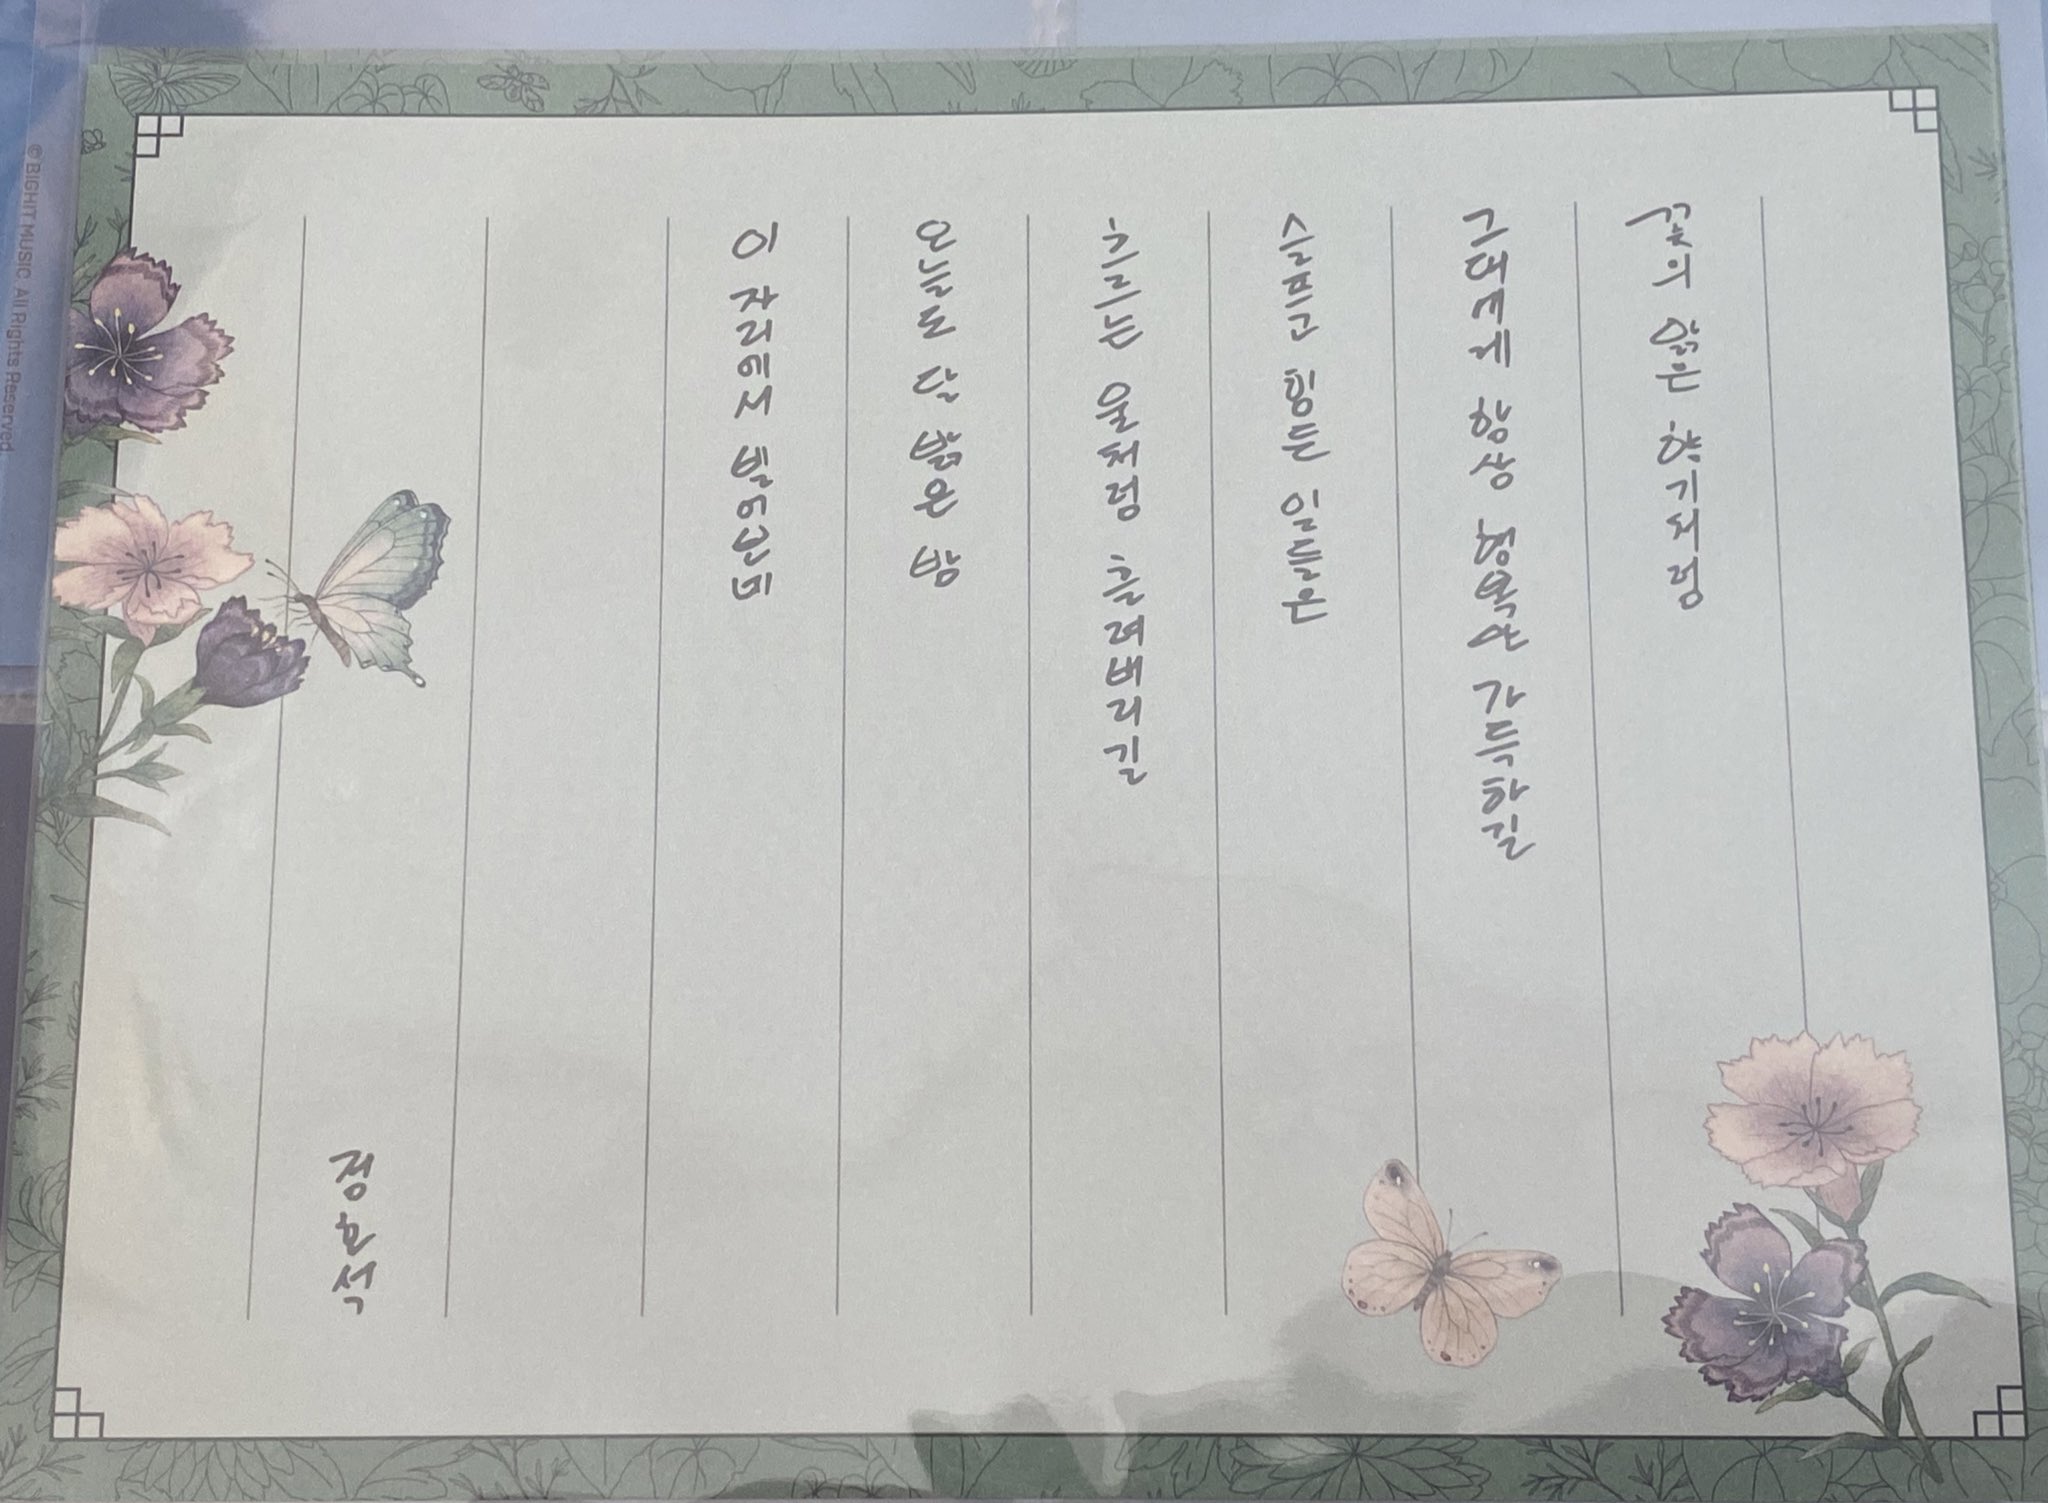 꽃의 맑은 향기처럼
그대에게 항상 행복만 가득하길
슬프고 힘든 일들은
흐르는 물처럼 흘려버리길
오늘도 달 밝은 밤
이 자리에서 빌어보네
정호석
© BIGHIT MUSIC All Rights Reserved